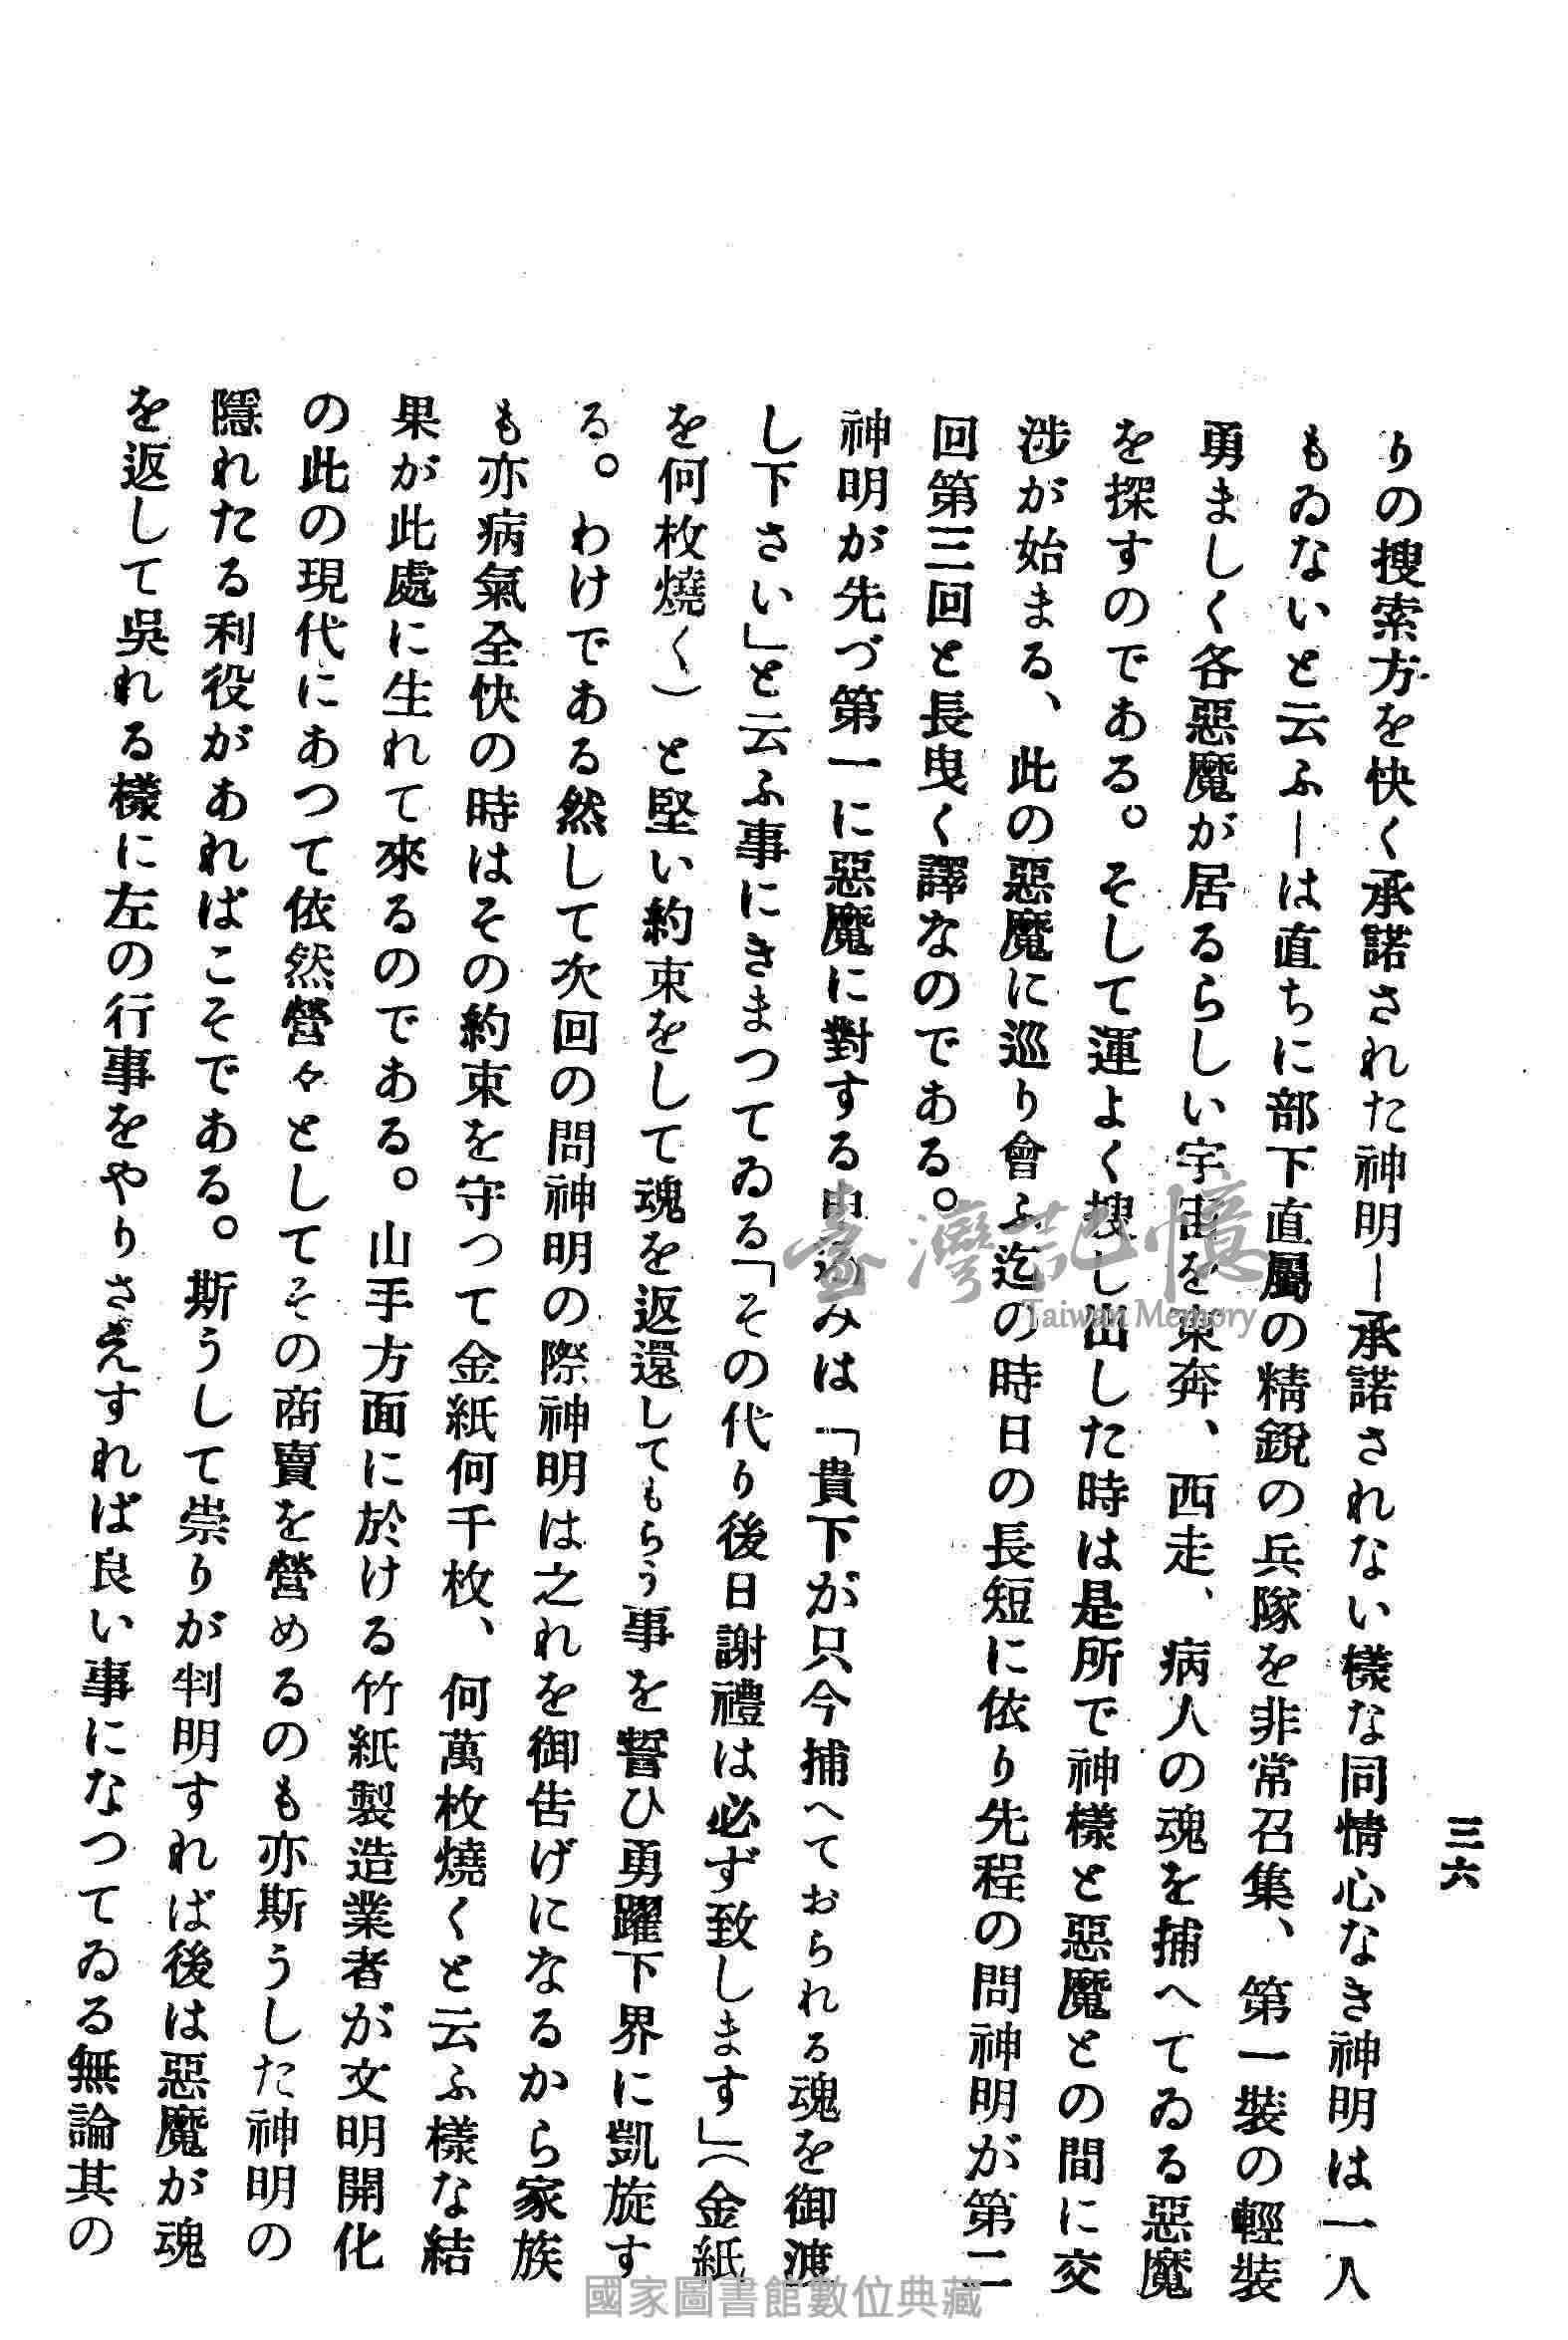 三六
りの搜索方を快く承諾された神明―承諾されない樣な同情心なき神明は一人
もゐないと云ふ―は直ちに部下直屬の精銳の兵隊を非常召集、第一裝の輕裝
勇ましく各惡魔が居るらしい宇宙を東奔、西走、病人の魂を捕へてゐる惡魔
を探すのである。そして運よく搜し出した時は是所で神樣と惡魔との間に交
涉が始まる、此の惡魔に巡り會ふ迄の時日の長短に依り先程の問神明が第二
回第三回と長曳く譯なのである。
神明が先づ第一に惡魔に對する申込みは「貴下が只今捕へておられる魂を御渡
し下さい」と云ふ事にきまつてゐる「その代り後日謝禮は必ず致します」（金紙
を何枚燒く）と堅い約束をして魂を返還してもらう事を誓ひ勇躍下界に凱旋す
る。わけである然して次回の問神明の際神明は之れを御吿げになるから家族
も亦病氣全快の時はその約束を守つて金紙何千枚、何萬枚燒くと云ふ樣な結
果が此處に生れて來るのである。山手方面に於ける竹紙製造業者が文明開化
の此の現代にあつて依然營々としてその商賣を營めるのも亦斯うした神明の
隱れたる利役があればこそである。斯うして祟りが判明すれば後は惡魔が魂
を返して吳れる樣に左の行事をやりさえすれば良い事になつてゐる無論其の
臺灣記憶
Taiwan Memory
國家圖書館數位典藏